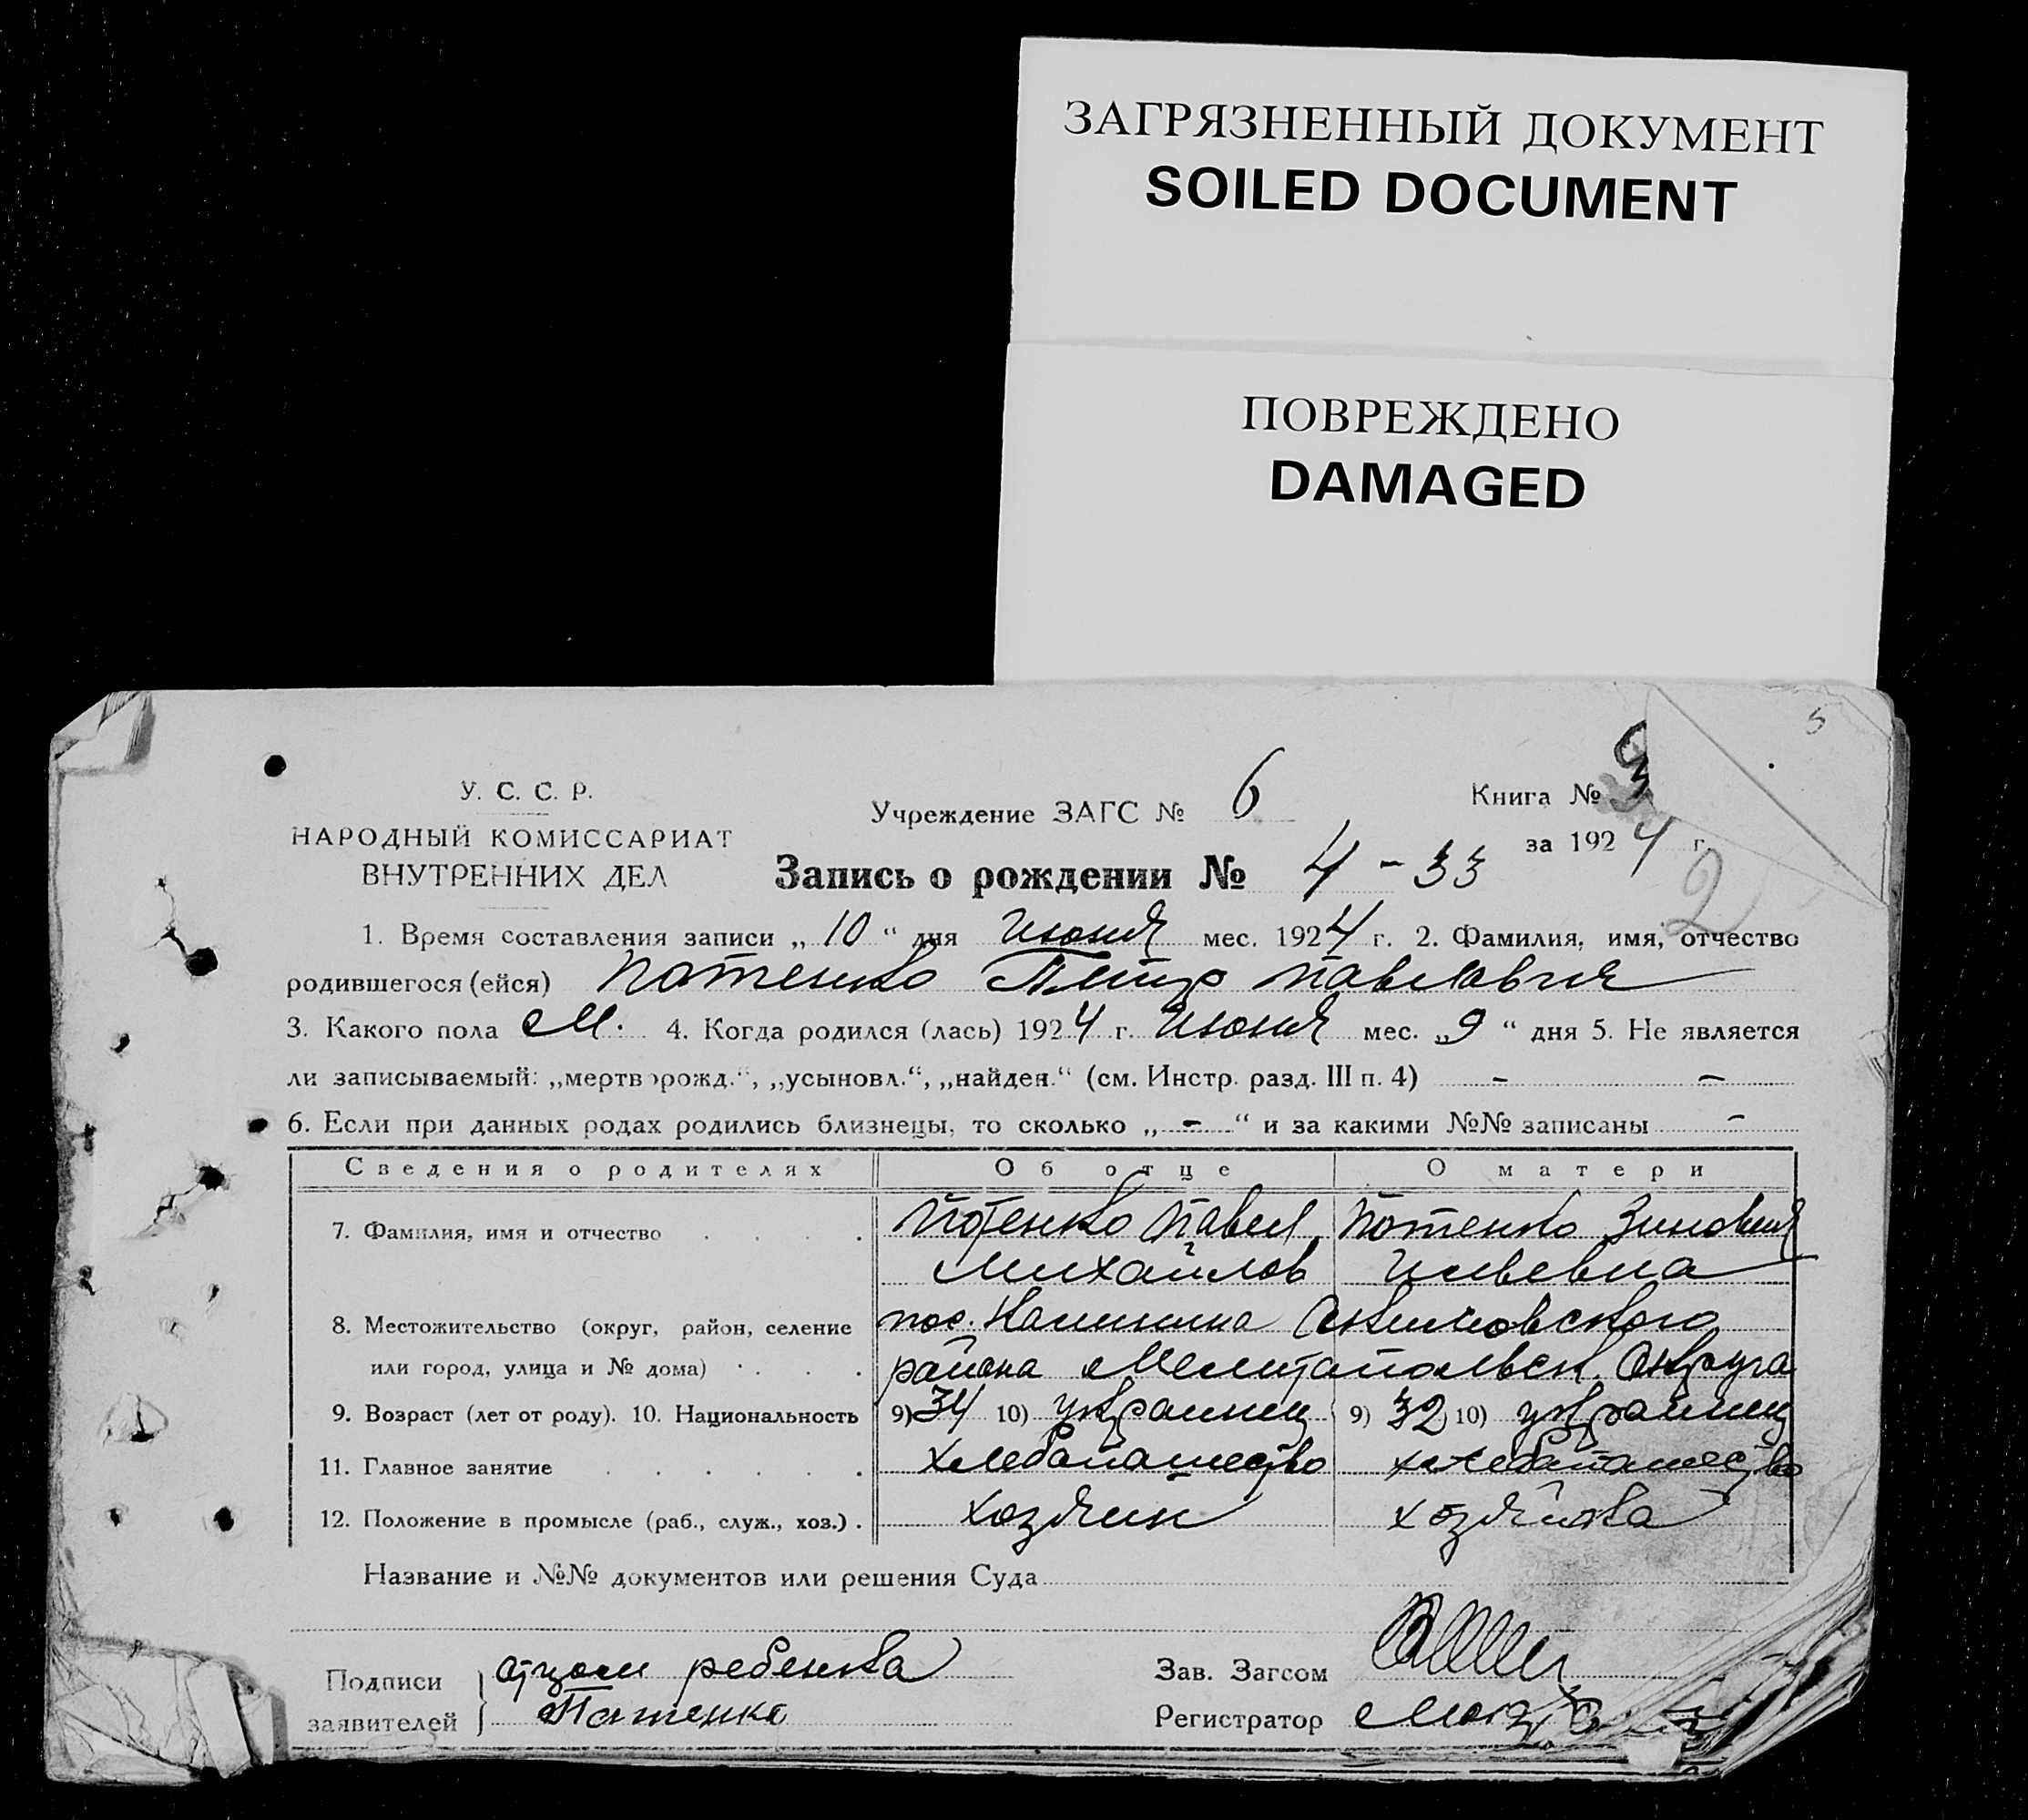 ЗАГРЯЗНЕННЫЙ ДОКУМЕНТ
SOILED DOCUMENT
ПОВРЕЖДЕНО
DAMAGED
5
У. С. С. Р.
НАРОДНЫЙ КОМИССАРИАТ
ВНУТРЕННИХ ДЕЛ
Учреждение ЗАГС № 6
Книга №
за 1924 г.
2
Запись о рождении № 4-33
1. Время составления записи „10“ дня Июня мес. 1924 г. 2. Фамилия, имя, отчество
родившегося (ейся) Потенко Петр Павлович
3. Какого пола М. 4. Когда родился (лась) 1924 г. Июня мес. „9“ дня 5. Не является
ли записываемый: „мертворожд.“, „усыновл.“, „найден.“ (см. Инстр. разд. III п. 4) - -
6. Если при данных родах родились близнецы, то сколько „-“ и за какими №№ записаны -
Сведения о родителях Об отце О матери
7. Фамилия, имя и отчество Потенко Павел Потенко Зиновия
Михайлов
8. Местожительство (округ, район, селение пос. Калинина Акимовского
или город, улица и № дома) района Мелитопольск. Округа
9. Возраст (лет от роду). 10. Национальность 9) 34 10) украинец 9) 32 10) украинец
11. Главное занятие хлебопашество хлебопашество
12. Положение в промысле (раб., служ., хоз.) хозяин хозяйка
Название и №№ документов или решения Суда
Подписи заявителей } отцом ребенка
Потенко
Зав. Загсом
Регистратор